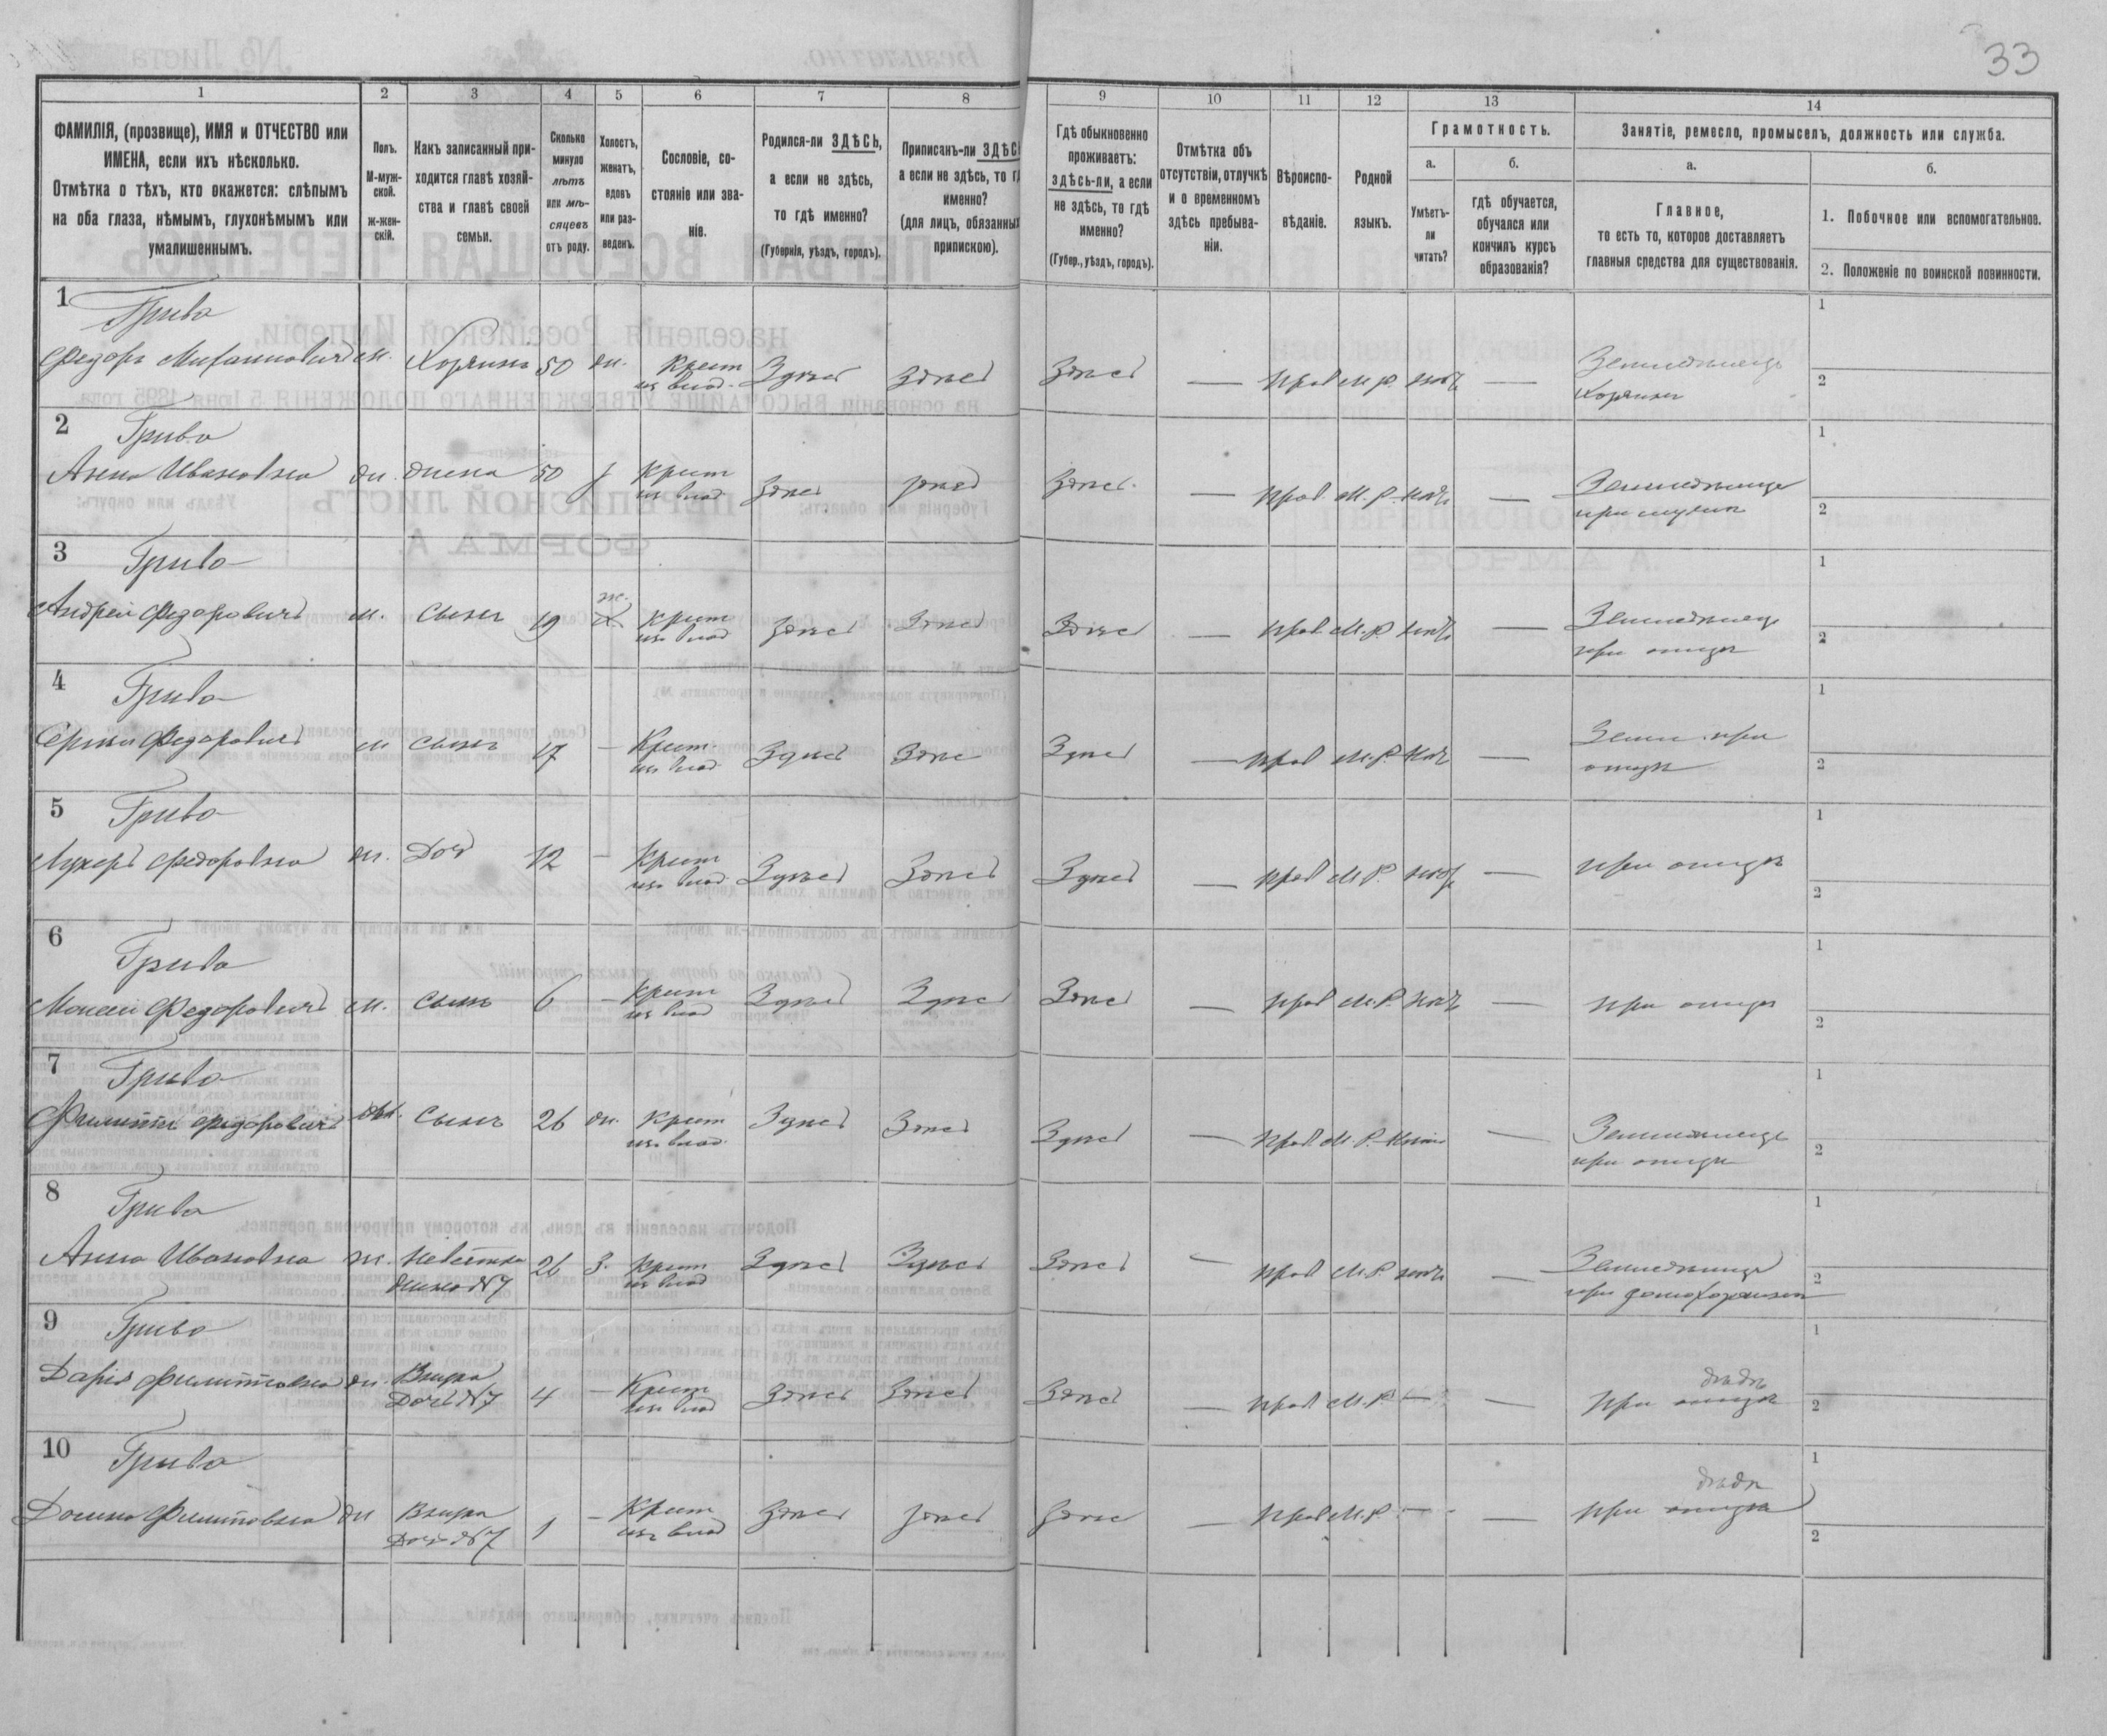 33
1 2 3 4 5 6 7 8 9 10 11 12 13 14
ФАМИЛІЯ, (прозвище), ИМЯ и ОТЧЕСТВО или
ИМЕНА, если ихъ нѣсколько.
Отмѣтка о тѣхъ, кто окажется: слѣпымъ
на оба глаза, нѣмымъ, глухонѣмымъ или
умалишеннымъ.
Полъ.
М-муж-
ской.
Ж-жен-
скій.
Какъ записанный при-
ходится главѣ хозяй-
ства и главѣ своей
семьи.
Сколько
минуло
лѣтъ
или мѣ-
сяцевъ
отъ роду.
Холостъ,
женатъ,
вдовъ
или раз-
веденъ.
Сословіе, со-
стояніе или зва-
ніе.
Родился-ли ЗДѢСЬ,
а если не здѣсь,
то гдѣ именно?
(Губернія, уѣздъ, городъ).
Приписанъ-ли ЗДѢС
а если не здѣсь, то г
именно?
(для лицъ, обязанны
припискою).
Гдѣ обыкновенно
проживаетъ:
здѣсь-ли, а если
не здѣсь, то гдѣ
именно?
(Губер., уѣздъ, городъ).
Отмѣтка объ
отсутствіи, отлучкѣ
и о временномъ
здѣсь пребыва-
ніи.
Вѣроиспо-
вѣданіе.
Родной
языкъ.
Грамотность.
а.
Умѣетъ-
ли
читать?
б.
гдѣ обучается,
обучался или
кончилъ курсъ
образованія?
Занятіе, ремесло, промыселъ, должность или служба.
а.
Главное,
то есть то, которое доставляетъ
главныя средства для существованія.
б.
1. Побочное или вспомогательное.
2. Положеніе по воинской повинности.
1 Грива 1
Федоръ м. Хозяинъ 50 ж. Крест Здѣсь Здѣсь Здѣсь — прав м.р. нѣтъ — Земледѣлецъ
из влад. Хозяинъ 2
2 Грива 1
Анна Ивановна ж. жена 50 Крест Здѣсь здѣсь Здѣсь — прав. М.Р. нѣтъ —
из влад. при мужѣ 2
3 Грива 1
ж.
Андрей Федоровичъ м. сынъ 19 Крест Здѣсь Здѣсь Здѣсь — прав М.Р. нѣтъ — Земледѣлец
из влад при отцѣ 2
4 Грива 1
Федоровичъ м сынъ 17 — Крест. Здѣсь Здѣс Здѣсь — прав М.Р. нѣтъ — Земл. при
из влад отцѣ 2
5 Грива 1
Федоровна ж. Доч 12 — Крест Здѣсь Здѣсь Здѣсь — прав М.Р. нѣтъ — при отцѣ
из влад 2
6 Грива 1
Моисей Федоровичъ м. сынъ 6 — Крест Здѣсь Здѣсь Здѣсь — прав М.Р. нѣтъ — при отцѣ
из влад 2
7 Грива 1
Филиппъ Федоровичъ сынъ 26 ж. Крест Здѣсь Здѣсь Здѣсь — прав М.Р. — Земледѣлецъ
из влад при отцѣ 2
8 Грива 1
Анна Ивановна ж. Невѣстка 26 З. Крест Здѣсь Здѣсь Здѣсь — прав М.Р. нѣтъ —
жена №7 из влад 2
9 Грива 1
дѣдѣ
Дарья Филипповна ж. Внука 4 — Крест Здѣсь Здѣсь Здѣсь — прав М.Р. — — при отцѣ
Дочь №7 из влад 2
10 Грива 1
дѣдѣ
Филипповна ж Внука 1 — Крест Здѣсь здѣсь Здѣсь — прав М.Р. — — при отцѣ
Дочь №7 из влад 2